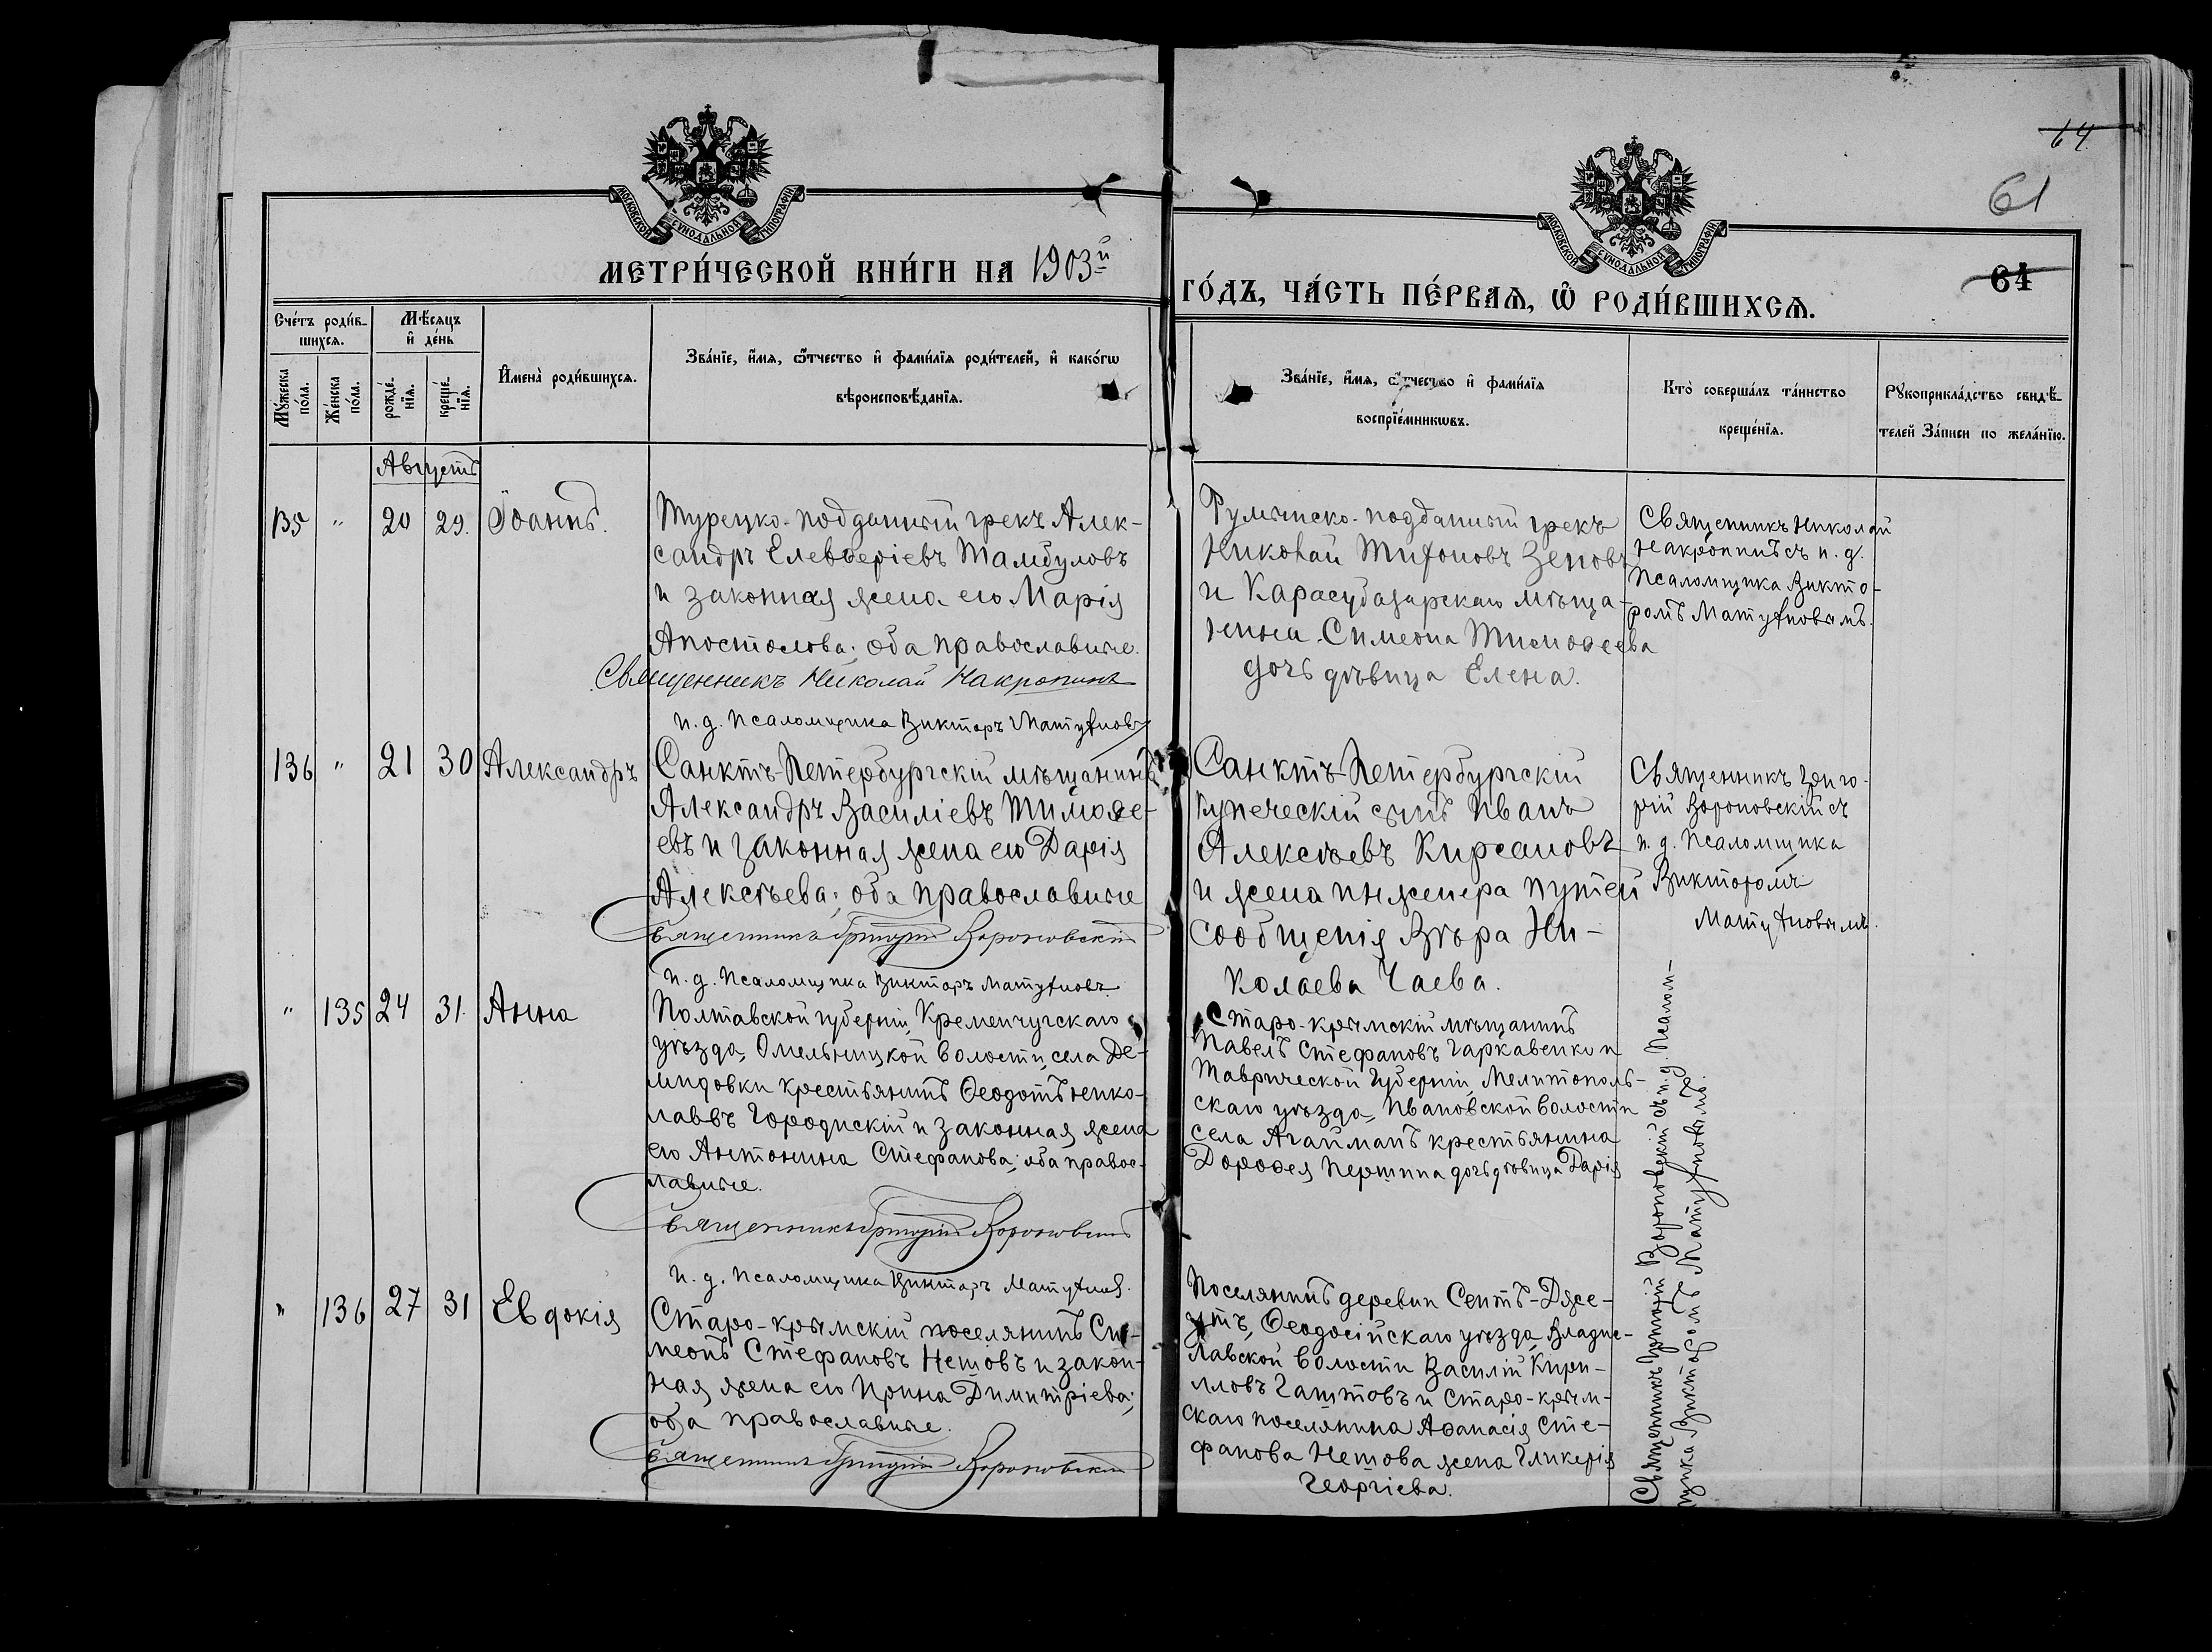 64
61
МОСКОВСКОЙ СѴНОДАЛЬНОЙ ТИПОГРАФІИ
МОСКОВСКОЙ СѴНОДАЛЬНОЙ ТИПОГРАФІИ
МЕТРИ́ЧЕСКОЙ КНИ́ГИ НА 1903й
ГО́ДЪ, ЧА́СТЬ ПЕ́РВАѦ, Ѡ҆ РОДИ́ВШИХСѦ.
64
Сче́тъ роди́в-
шихсѧ.
Мѣ́сяцъ
и҆ де́нь
Мꙋ́жеска
по́ла.
Же́нска
по́ла.
рожде́-
нїѧ.
креще́-
нїѧ.
И҆мена̀ роди́вшихсѧ.
Зва́нїе, и҆́мѧ, ѻ҆́тчество и҆ фами́лїѧ роди́телей, и҆ како́гѡ
вѣроисповѣ́данїѧ.
Зва́нїе, и҆́мѧ, ѻ҆́тчество и҆ фами́лїѧ
воспрїе́мникѡвъ.
Кто̀ соверша́лъ та́инство
креще́нїѧ.
Рꙋкоприкла́дство свидѣ́-
телей За́писи по жела́нїю.
Августъ
135 " 20 29. Іоаннъ.
Турецко-подданный грекъ Алек-
сандръ Елевѳеріевъ Тамбуловъ
и законная жена его Марія
Апостолова; оба православные.
Священникъ Николай Накропинъ
и. д. псаломщика Викторъ
Румынско-подданный грекъ
Николай Тифоновъ Зеновъ
и Карасубазарскаго мѣща-
нина Симеона Тимоѳеева
дочь дѣвица Елена.
Священникъ Николай
Накропинъ съ и. д.
псаломщика Викто-
ромъ
136 " 21 30 Александръ
Санктъ-Петербургскій мѣщанинъ
Александръ Василіевъ Тимоѳе-
евъ и законная жена его Дарія
Алексѣева; оба православные
Священникъ Григорій Вороновскій
и. д. псаломщика Викторъ
Санктъ-Петербургскій
купеческій сынъ Иванъ
Алексѣевъ Кирсановъ
и жена инженера путей
сообщенія Вѣра Ни-
колаева Чаева.
Священникъ Григо-
рій Вороновскій съ
и. д. псаломщика
Викторомъ
" 135 24 31. Анна
Полтавской губерніи, Кременчугскаго
уѣзда, Омельницкой волости, села Де-
мидовки крестьянинъ Ѳеодотъ Нико-
лаевъ Городискій и законная жена
его Антонина Стефанова; оба правос-
лавные.
Священникъ Григорій Вороновскій
и. д. псаломщика Викторъ
Старо-крымскій мѣщанинъ
Павелъ Стефановъ Гаркавенко и
Таврической губерніи, Мелитополь-
скаго уѣзда, Ивановской волости
села Агайманъ крестьянина
Дороѳея Першина дочь дѣвица Дарія
Священникъ Григорій Вороновскій съ и. д. псалом-
щика Викторомъ
" 136 27 31 Евдокія
Старо-крымскій поселянинъ Си-
меонъ Стефановъ Нетовъ и закон-
ная жена его Ирина Димитріева;
оба православные.
Священникъ Григорій Вороновскій
Поселянинъ деревни Сеитъ-Дже-
утъ, Ѳеодосійскаго уѣзда, Владис-
лавской волости Василій Кири-
лловъ Гаштовъ и Старо-крым-
скаго поселянина Аѳанасія Сте-
фанова Нетова жена Гликерія
Георгіева.